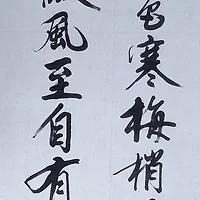 寒梅梢
風至自有